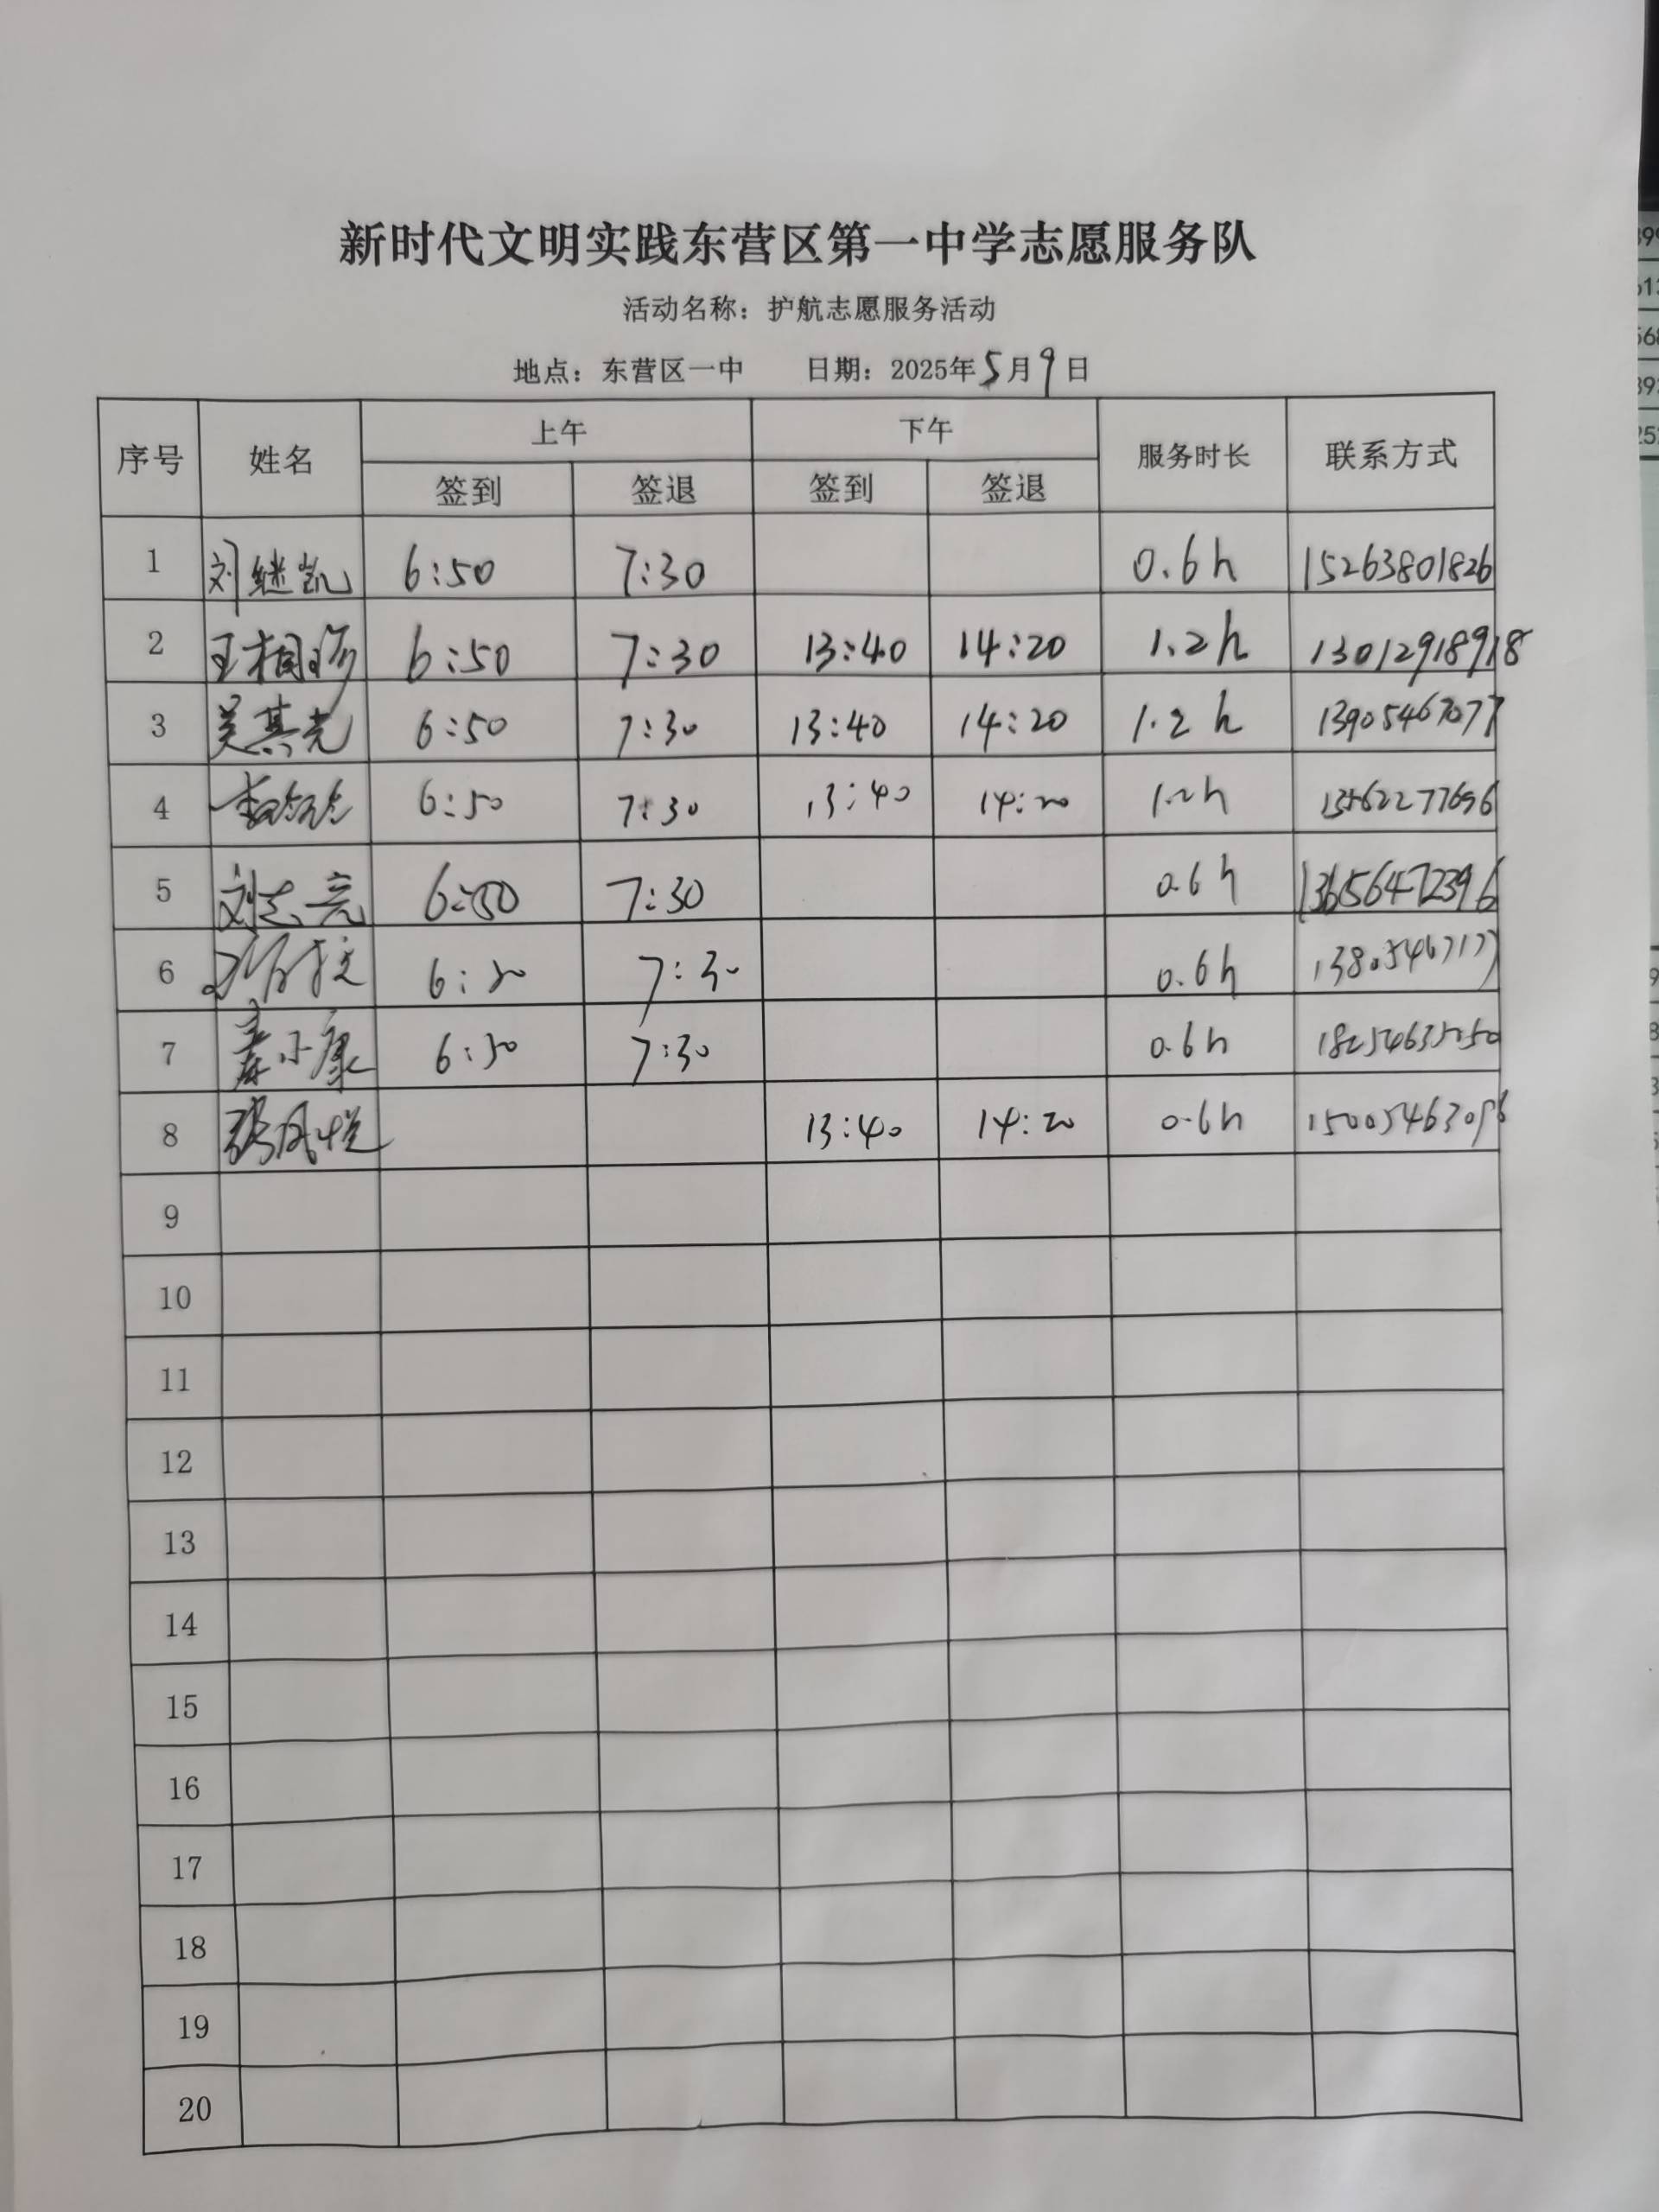 新时代文明实践东营区第一中学志愿服务队
活动名称：护航志愿服务活动
地点：东营区一中 日期：2025年5月9日
序号 姓名 上午 下午 服务时长 联系方式
签到 签退 签到 签退
1 刘继凯 6:50 7:30 0.6h 15263801826
2 6:50 7:30 13:40 14:20 1.2h 13012918918
3 吴其光 6:50 7:30 13:40 14:20 1.2h 13905467077
4 6:50 7:30 13:40 14:20 1.2h 13562277696
5 刘志亮 6:50 7:30 0.6h 13656472396
6 6:50 7:30 0.6h
7 秦小康 6:50 7:30 0.6h
8 张凤悦 13:40 14:20 0.6h
9
10
11
12
13
14
15
16
17
18
19
20